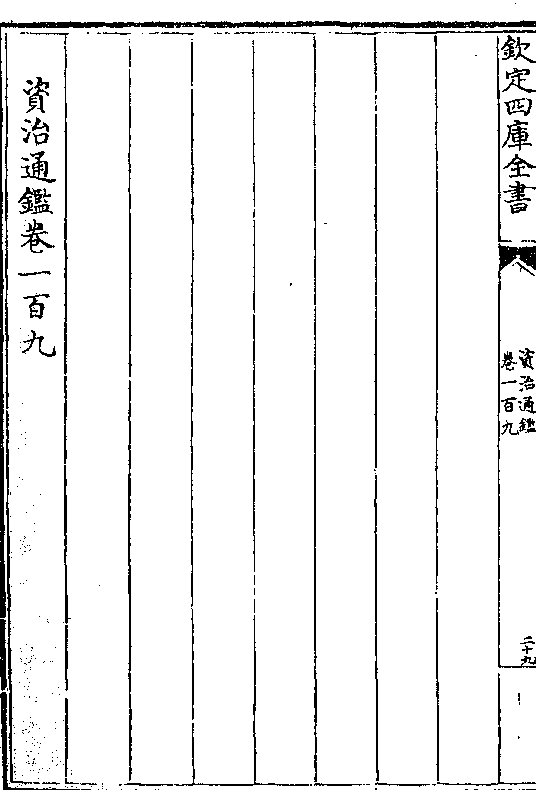 欽定四庫全書
資治通鑑
卷一百九
二十九
資治通鑑卷一百九